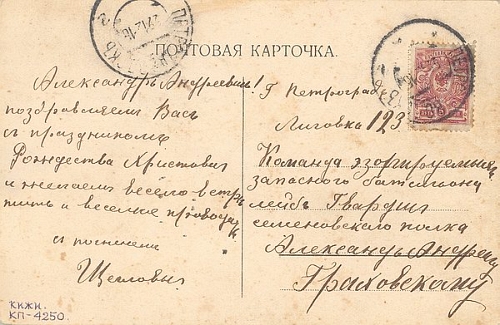 ПОЧТОВАЯ КАРТОЧКА.
Александръ Андреевичъ!
поздравляем Васъ
съ праздникомъ
Рождества Христова
и желаем весело встре
тить и веселие проводи
съ почтени
Щегловы
Г Петроград
Лиговка 123
Команда эзорцируемых
запасного баталиона
лейбъ Гвардии
семеновского полка
Александъ Андрееву
Граховскому
КИЖИ.
КП-4250.